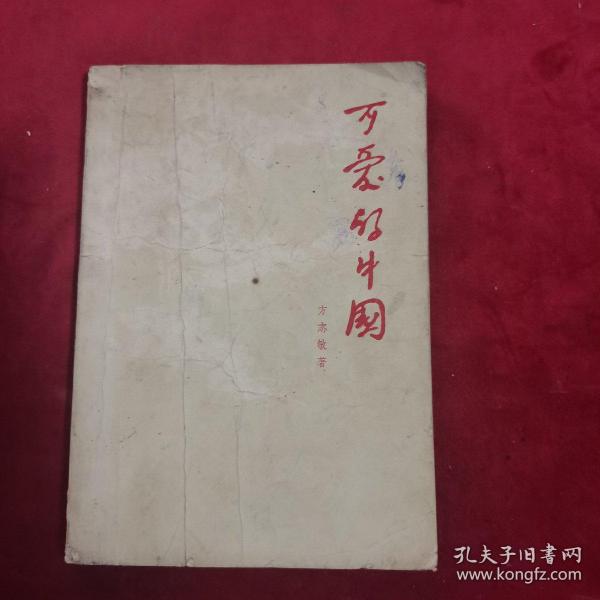 可爱的中國
方志敏著
孔夫子旧書网
www.kongfz.com